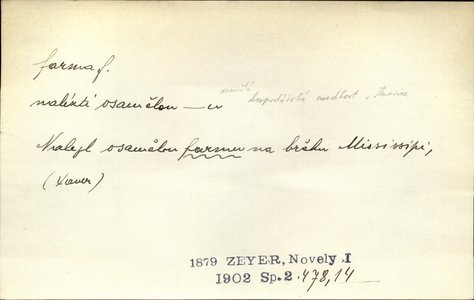 farma f.
nalézti osamělou — u
hospodářská
Nalezl osamělou farmu na břehu Mississipi,
(Xaver)
1879 ZEYER, Novely I
1902 Sp. 2. 478,14